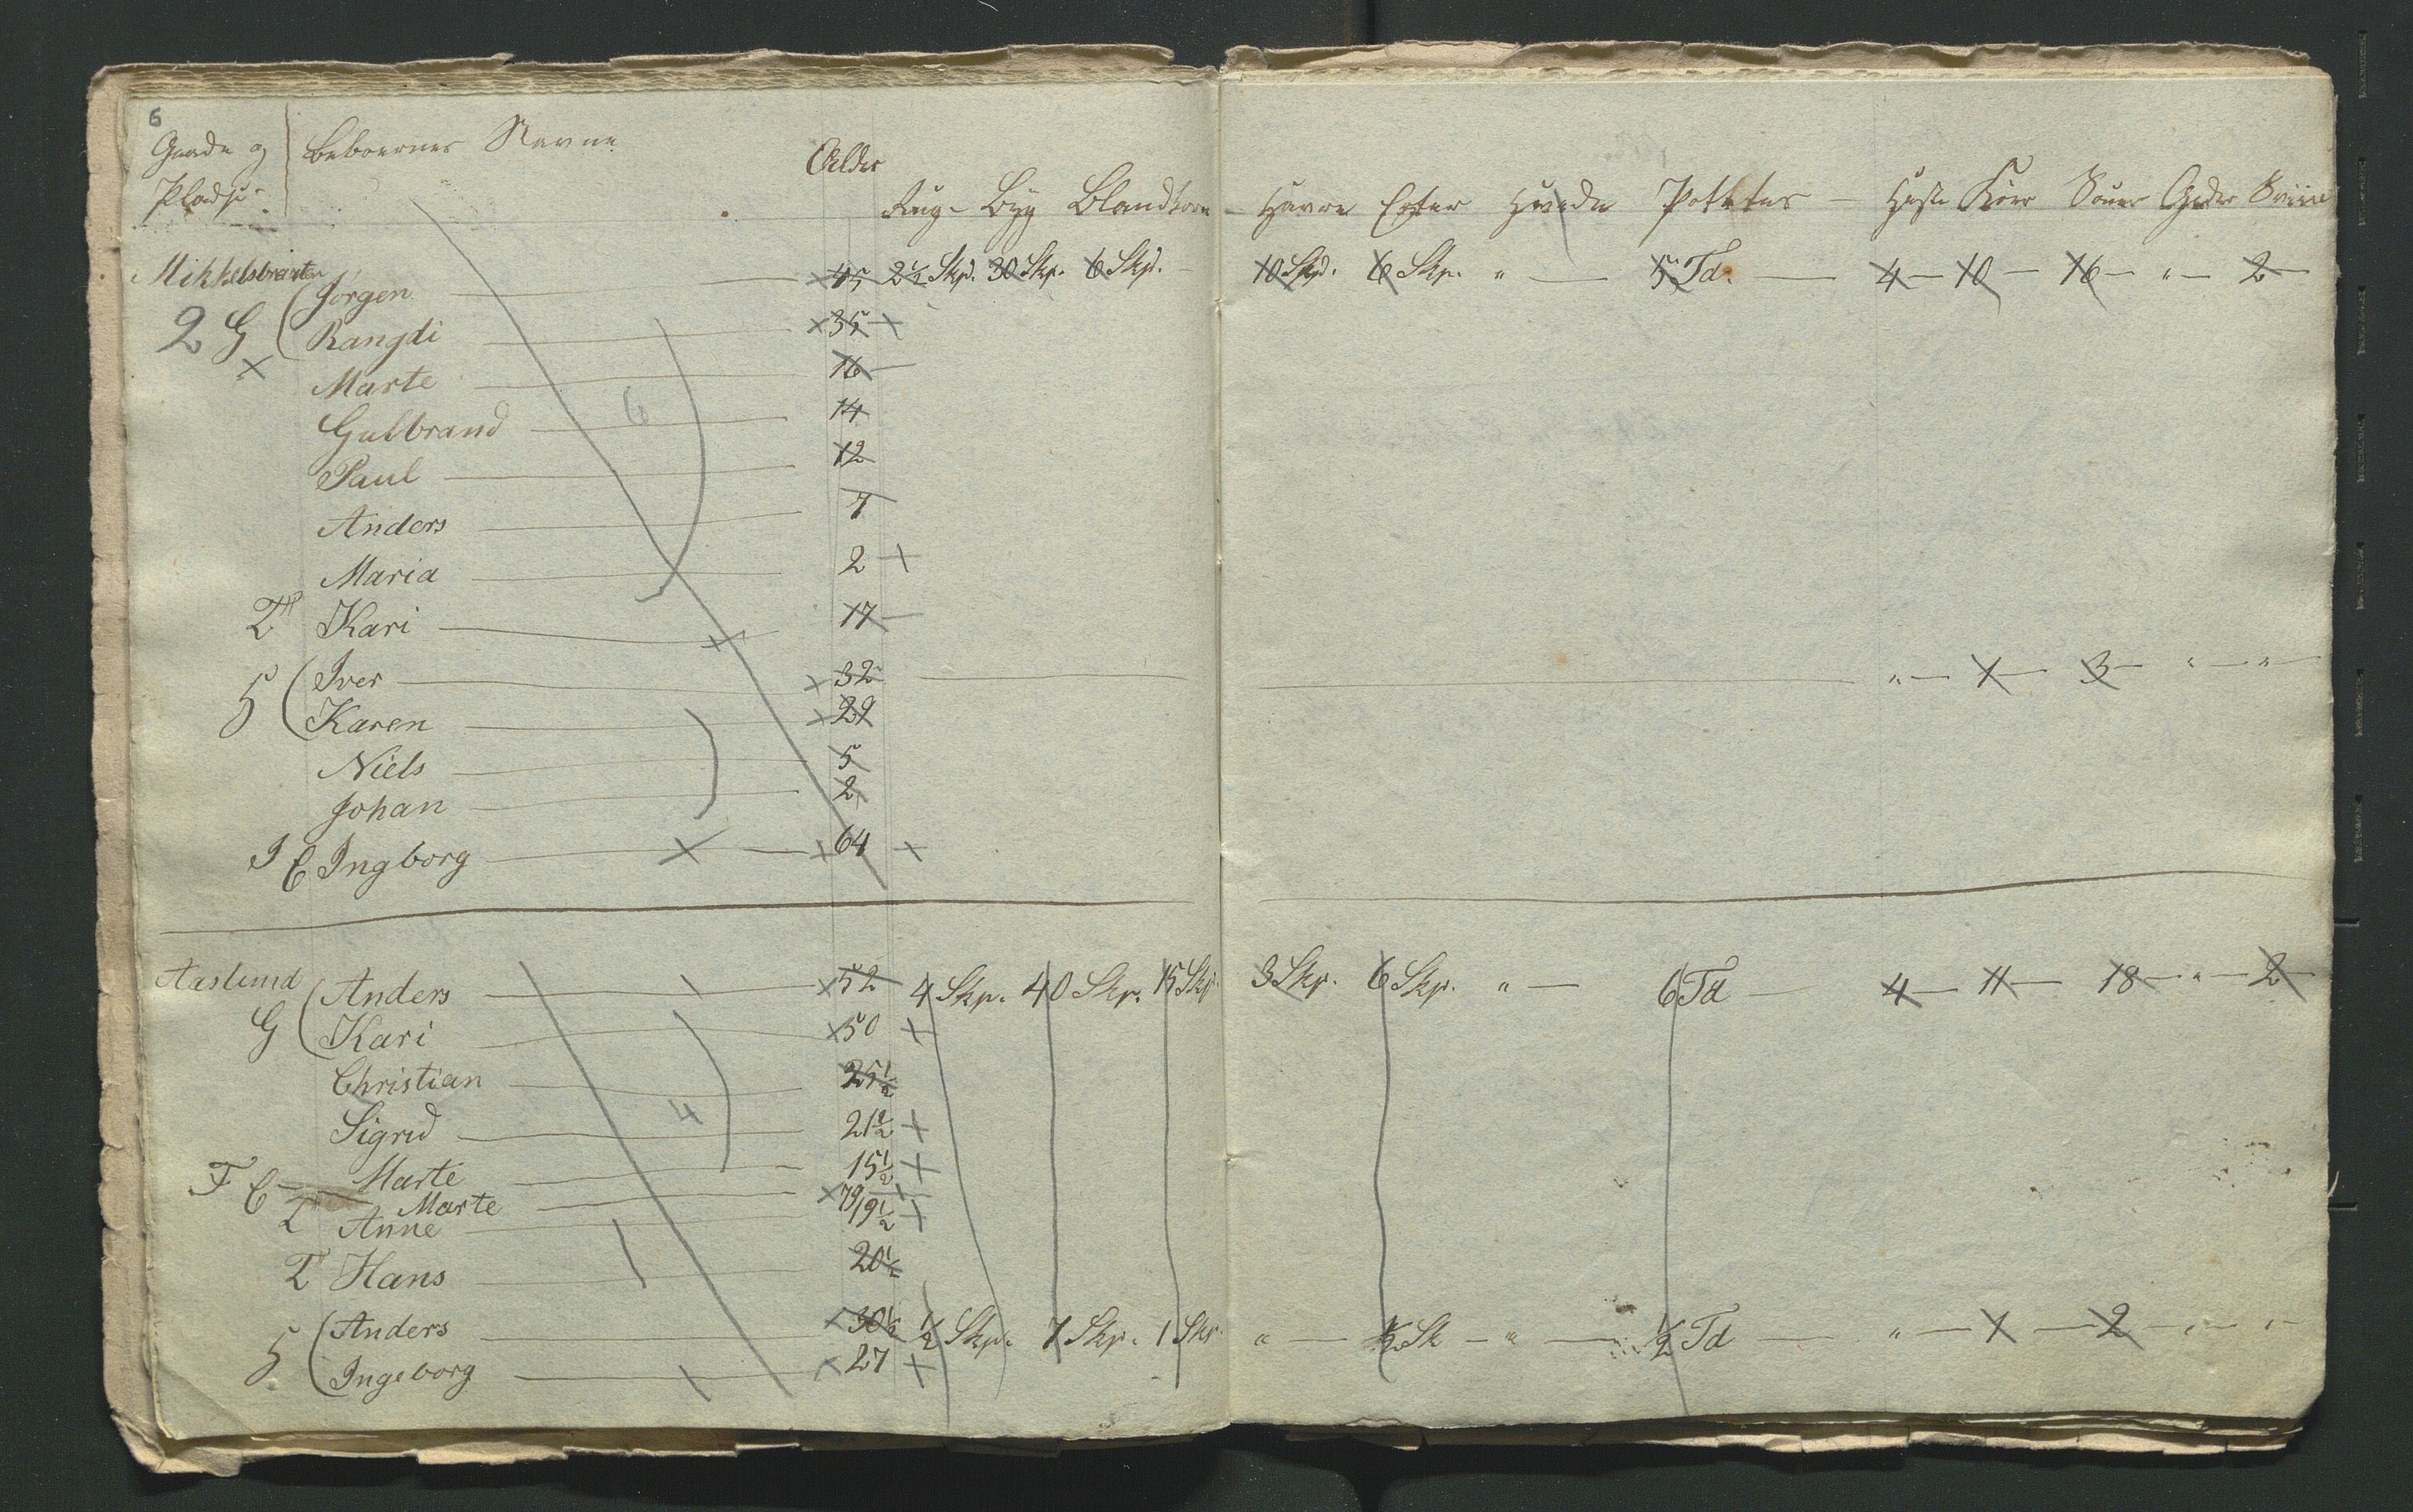 6
Gaarde og Beboernes Navne Alder
Pladse Rug Byg Blandkorn Havre Erter Hvede Potetes Heste Kiør Souer Geder Sviin
Mikkelsbraaten Jørgen 45 2½ Skp. 30 Skp. 6 Skp. 10 Skp. 6 Skp. " 5 Td. 4 10 16 " 2
2 G Rangdi 35
Marte 16
Gulbrand 14
6
Paul 12
Anders 7
Maria 2
T Kari 17
Iver 32 " 1 3 " "
H Karen 29
Niels 5
Johan 2
I E Ingborg 64
Aaslund Anders 52 4 Skp. 40 Skp. 15 Skp. 3 Skp. 6 Skp. " 6 Td 4 11 18 " 2
G Kari 50
Christian 25½
4
Sigrid 21½
Marte 15½
F E Marte 79
T Anne 19½
T Hans 20½
Anders 30½ ½ Skp. 7 Skp. 1 Skp. " ½ Sk " ½ Td " 1 2 " "
H Ingeborg 27